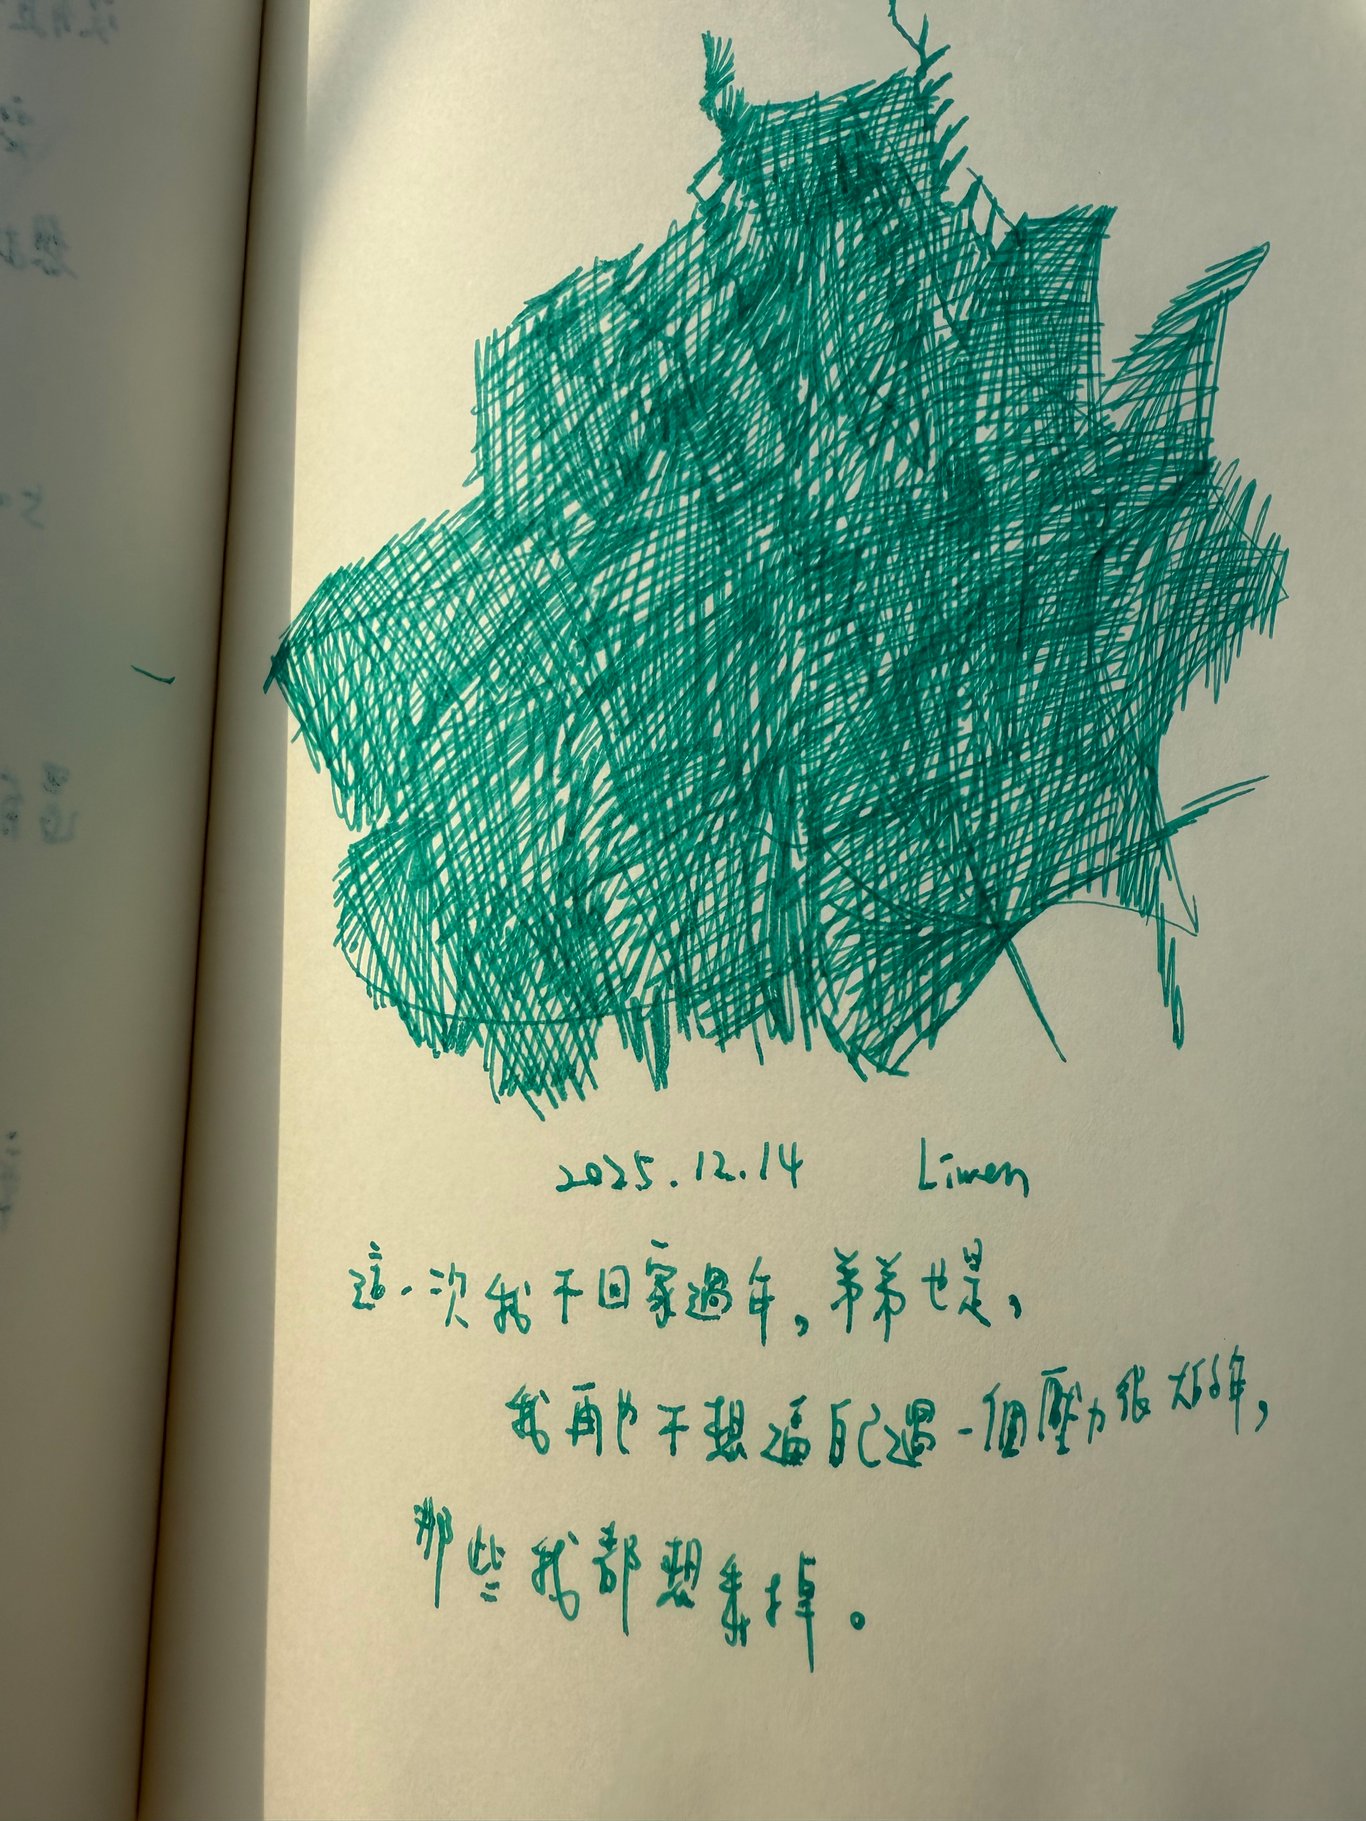 2025.12.14 Limen
這一次我不回家過年,弟弟也是,
我再也不想逼自己過一個壓力很大的年,
那些我都想棄掉。